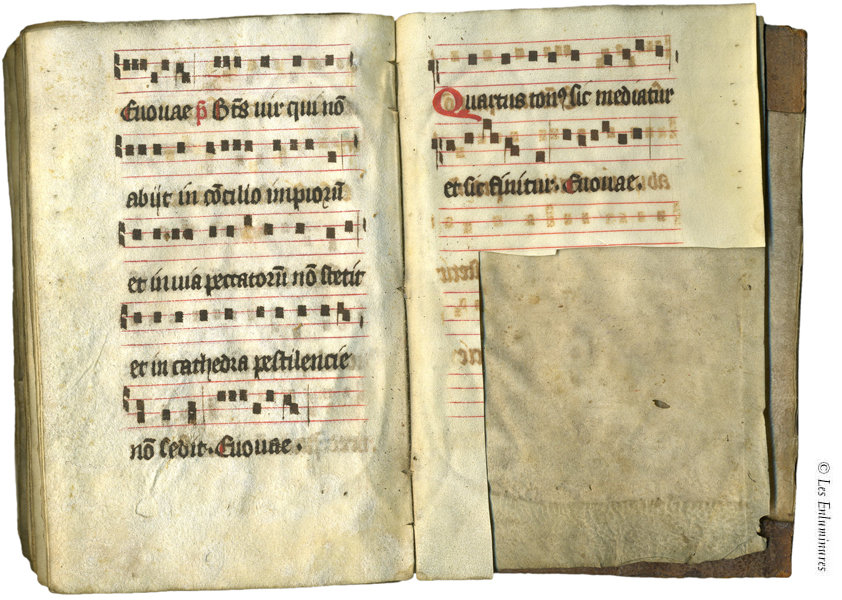 Euouae p̄ Bt̄s uir qui nō
abijt in cōcilio impiorū
et in uia peccatorū nō stetit
et in cathedra pestilencie
nō sedit. Euouae.
Quartus tonꝰ sic mediatur
et sic finitur. Euouae.
© Les Enluminures